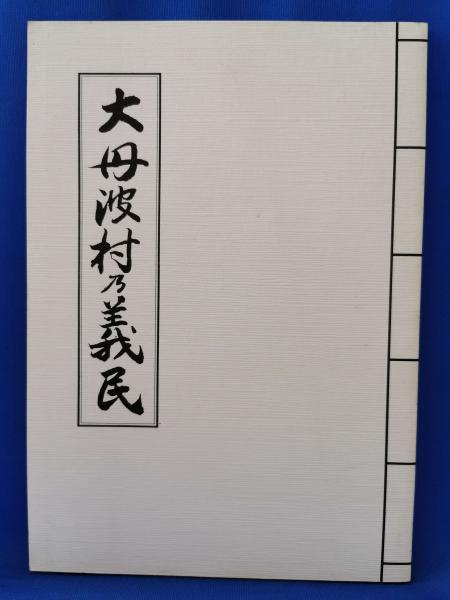 大丹波村乃義民